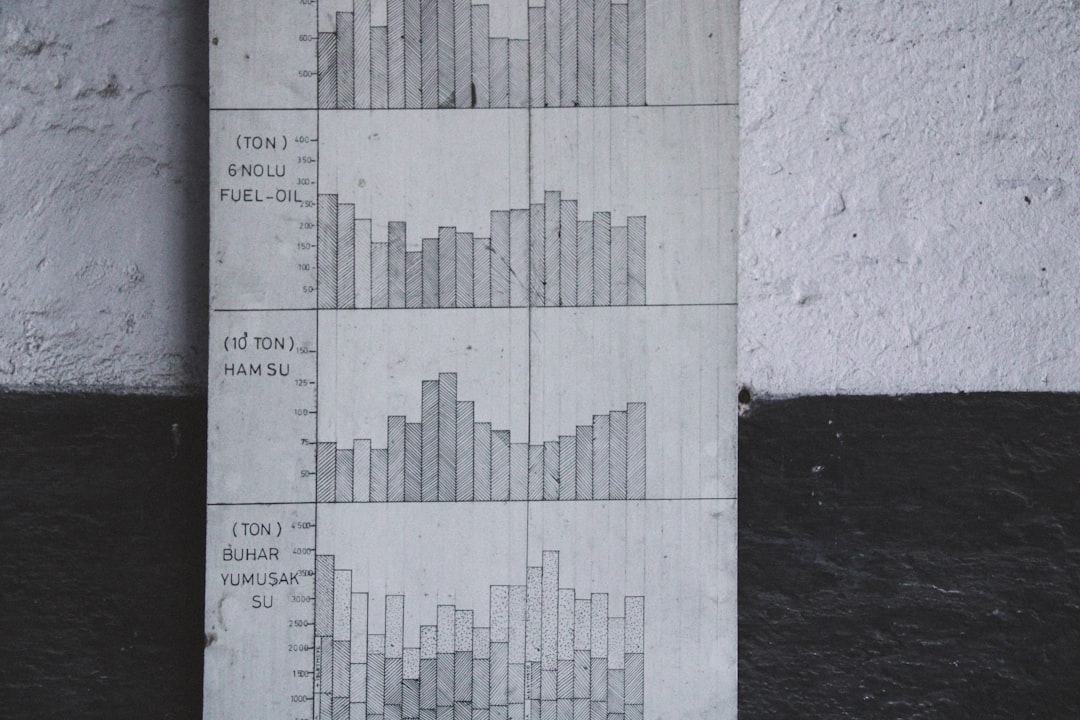 600
500
(TON)
6 NOLU
FUEL-OIL
400
350
300
250
200
150
100
50
(10³ TON)
HAM SU
150
125
100
75
50
(TON)
BUHAR
YUMUŞAK
SU
4500
4000
3500
3000
2500
2000
1500
1000